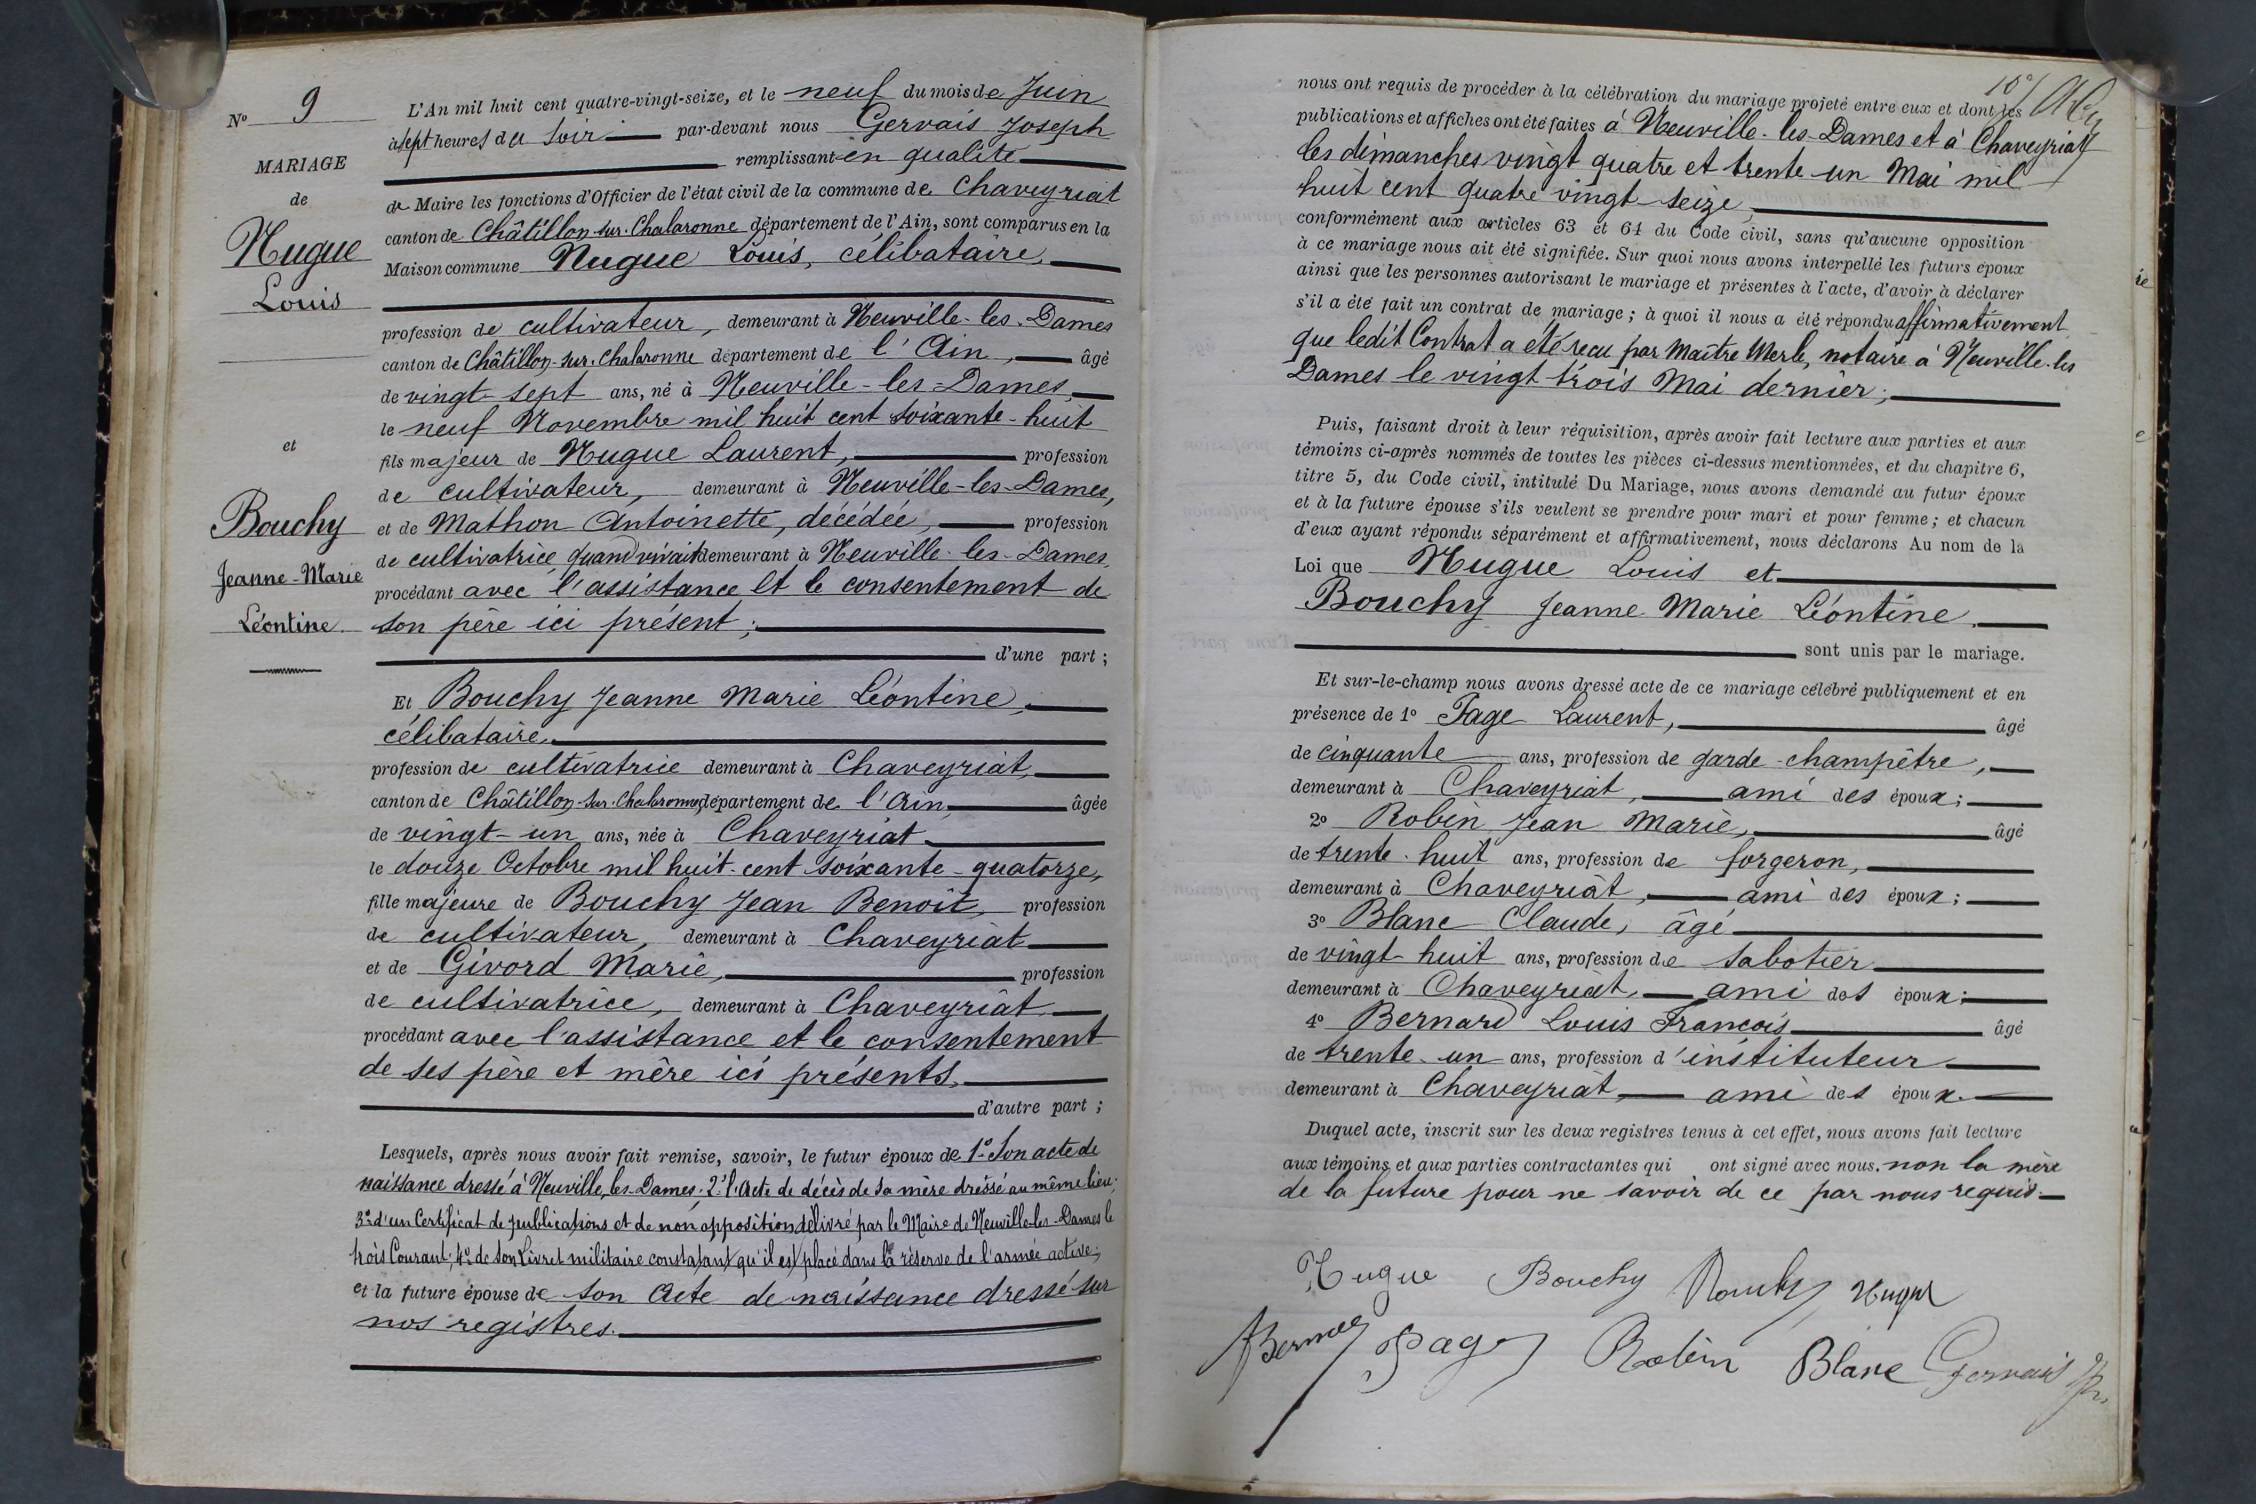 Nº 9
MARIAGE
de
Nugue
Louis
et
Bouchy
Jeanne-Marie
Léontine.
L'An mil huit cent quatre-vingt-seize, et le neuf du mois de Juin
à sept heures du soir par-devant nous Gervais Joseph
remplissant en qualité
de Maire les fonctions d'Officier de l'état civil de la commune de Chaveyriat
canton de Châtillon-sur-Chalaronne département de l'Ain, sont comparus en la
Maison commune Nugue Louis, célibataire,
profession de cultivateur, demeurant à Neuville-les-Dames
canton de Châtillon-sur-Chalaronne département de l'Ain, âgé
de vingt-sept ans, né à Neuville-les-Dames,
le neuf Novembre mil huit cent soixante-huit
fils majeur de Nugue Laurent, profession
de cultivateur, demeurant à Neuville-les-Dames,
et de Mathon Antoinette, décédée, profession
de cultivatrice quand vivait demeurant à Neuville-les-Dames,
procédant avec l'assistance et le consentement de
son père ici présent;
d'une part;
Et Bouchy Jeanne Marie Léontine,
célibataire,
profession de cultivatrice demeurant à Chaveyriat,
canton de Châtillon-sur-Chalaronne, département de l'Ain, âgée
de vingt-un ans, née à Chaveyriat
le douze Octobre mil huit-cent soixante-quatorze,
fille majeure de Bouchy Jean Benoît, profession
de cultivateur, demeurant à Chaveyriat
et de Givord Marie, profession
de cultivatrice, demeurant à Chaveyriat,
procédant avec l'assistance et le consentement
de ses père et mère ici présents,
d'autre part;
Lesquels, après nous avoir fait remise, savoir, le futur époux de 1º Son acte de
naissance dressé à Neuville-les-Dames; 2º l'Acte de décès de sa mère dressé au même lieu;
3º d'un Certificat de publications et de non opposition délivré par le Maire de Neuville-les-Dames le
trois Courant; 4º de son Livret militaire constatant qu'il est placé dans la réserve de l'armée active;
et la future épouse de son Acte de naissance dressé sur
nos registres.
10º
nous ont requis de procéder à la célébration du mariage projeté entre eux et dont les
publications et affiches ont été faites à Neuville-les-Dames et à Chaveyriat
les dimanches vingt quatre et trente-un Mai mil
huit cent quatre vingt-seize,
conformément aux articles 63 et 64 du Code civil, sans qu'aucune opposition
à ce mariage nous ait été signifiée. Sur quoi nous avons interpellé les futurs époux
ainsi que les personnes autorisant le mariage et présentes à l'acte, d'avoir à déclarer
s'il a été fait un contrat de mariage; à quoi il nous a été répondu affirmativement
que ledit Contrat a été reçu par Maître Merle, notaire à Neuville-les
Dames le vingt trois Mai dernier;
Puis, faisant droit à leur réquisition, après avoir fait lecture aux parties et aux
témoins ci-après nommés de toutes les pièces ci-dessus mentionnées, et du chapitre 6,
titre 5, du Code civil, intitulé Du Mariage, nous avons demandé au futur époux
et à la future épouse s'ils veulent se prendre pour mari et pour femme; et chacun
d'eux ayant répondu séparément et affirmativement, nous déclarons Au nom de la
Loi que Nugue Louis et
Bouchy Jeanne Marie Léontine.
sont unis par le mariage.
Et sur-le-champ nous avons dressé acte de ce mariage célébré publiquement et en
présence de 1º Page Laurent, âgé
de cinquante ans, profession de garde-champêtre,
demeurant à Chaveyriat, ami des époux;
2º Robin Jean Marie, âgé
de trente-huit ans, profession de forgeron,
demeurant à Chaveyriat, ami des époux;
3º Blanc Claude, âgé
de vingt-huit ans, profession de sabotier
demeurant à Chaveyriat, ami des époux;
4º Bernard Louis François âgé
de trente-un ans, profession d'instituteur
demeurant à Chaveyriat, ami des époux.
Duquel acte, inscrit sur les deux registres tenus à cet effet, nous avons fait lecture
aux témoins et aux parties contractantes qui ont signé avec nous, non la mère
de la future pour ne savoir de ce par nous requis.
Nugue Bouchy Bouchy Nugue
Page Robin Blanc Gervais